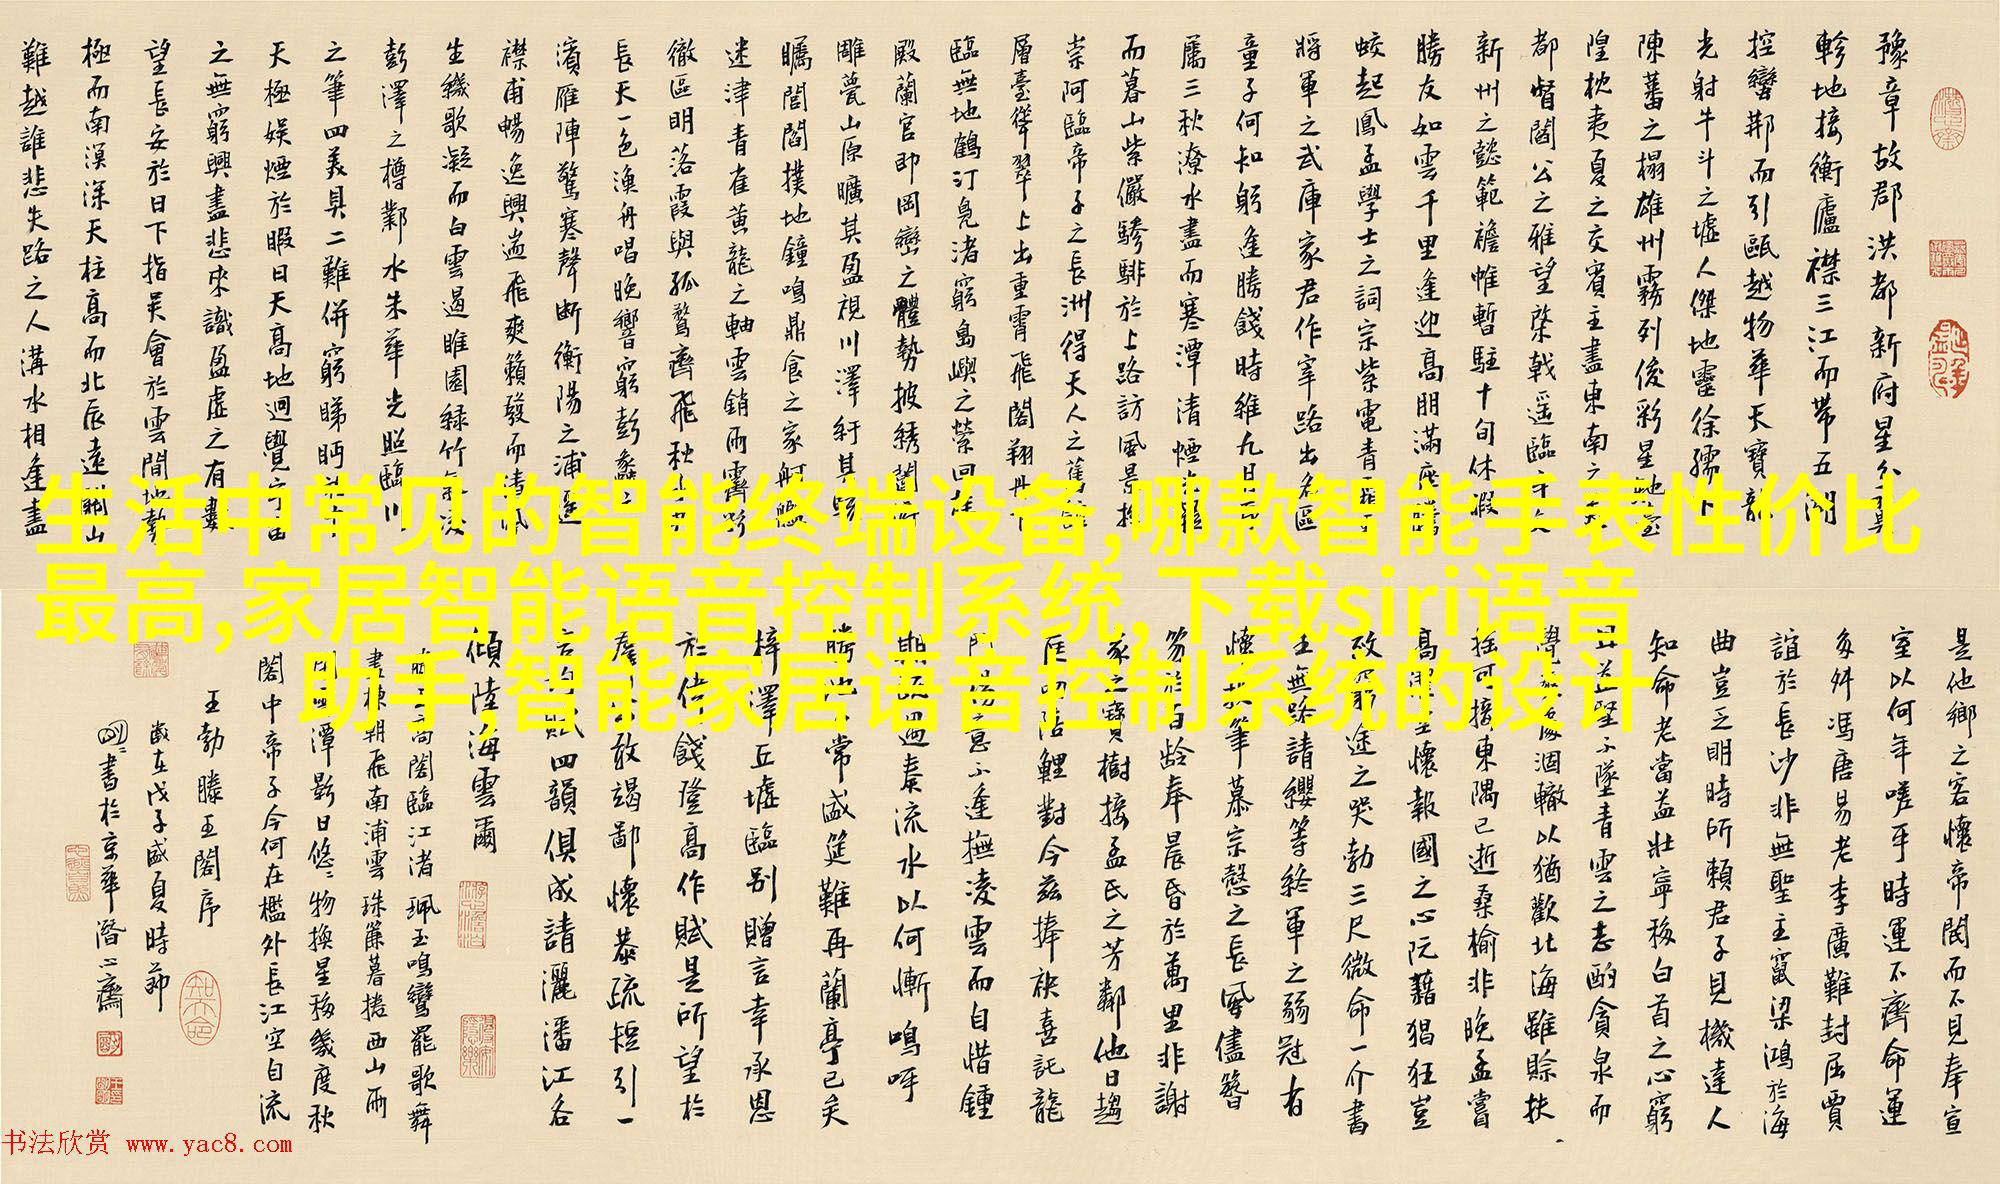 豫章故郡洪都新府星分翼
軫地接衡廬襟三江而帶五湖
控蠻荊而引甌越物華天寶龍
光射牛斗之墟人傑地靈徐孺下
陳蕃之榻雄州霧列俊彩星馳臺
隍枕夷夏之交賓主盡東南之
都督閻公之雅望棨戟遥臨宇文
新州之懿範襜帷暫駐十旬休暇
勝友如雲千里逢迎高朋滿座騰
蛟起鳳孟學士之詞宗紫電青霜
將軍之武庫家君作宰路出名區
童子何知躬逢勝餞時維九月序
屬三秋潦水盡而寒潭清煙光凝
而暮山紫儼驂騑於上路訪風景於
崇阿臨帝子之長洲得天人之舊館
層臺聳翠上出重霄飛閣翔丹下
臨無地鶴汀鳧渚窮島嶼之縈回桂
殿蘭宮即岡巒之體勢披綉闥俯
雕甍山原曠其盈視川澤紆其駭
矚閭閻撲地鐘鳴鼎食之家舸艦
迷津青雀黃龍之軸雲銷雨霽彩
徹區明落霞與孤鶩齊飛秋水共
長天一色漁舟唱晚響窮彭蠡之
濱雁陣驚寒聲斷衡陽之浦遥
襟甫暢逸興遄飛爽籟發而清風
生纖歌凝而白雲遏睢園綠竹氣凌
彭澤之樽鄴水朱華光照臨川
之筆四美具二難併窮睇眄
天極娛遊於暇日天高地迥覺宇宙
之無窮興盡悲來識盈虛之有數
望長安於日下指吳會於雲間地勢
極而南溟深天柱高而北辰遠關山
難越誰悲失路之人溝水相逢盡
生活中常见的智能终端设备,哪款智能手表性价比
最高,家居智能语音控制系统,下载siri语音
助手,智能家居语音控制系统的设计
是他鄉之客懷帝閽而不見奉宣
室以何年嗟乎時運不齊命運
多舛馮唐易老李廣難封屈賈
誼於長沙非無聖主竄梁鴻於海
曲豈乏明時所賴君子見機達人
知命老當益壯寧移白首之心窮
且益堅不墜青雲之志酌貪泉而
覺爽處涸轍以猶歡北海雖賒扶
搖可接東隅已逝桑榆非晚孟嘗
高潔空懷報國之心阮藉猖狂豈
效窮途之哭勃三尺微命一介書
生無路請纓等終軍之弱冠有
懷投筆慕宗愨之長風儘簪
笏於百齡奉晨昏於萬里非謝
家之寶樹接孟氏之芳鄰他日趨
庭叨陪鯉對今茲捧袂喜託龍
門楊意不逢撫凌雲而自惜鍾
期既遇奏流水以何慚嗚呼
勝地不常盛筵難再蘭亭已矣
梓澤丘墟臨别贈言幸承恩
於偉餞登高作賦是所望於
羣公敢竭鄙懷恭疏短引一
言均賦四韻俱成請灑潘江各
傾陸海雲爾
滕王高閣臨江渚珮玉鳴鸞罷歌舞
畫棟朝飛南浦雲珠簾暮捲西山雨
閒雲潭影日悠々物換星移幾度秋
閣中帝子今何在檻外長江空自流
王勃滕王閣序
歲在戊子盛夏時節
書於京華潛心齋
书法欣赏 www.yac8.com